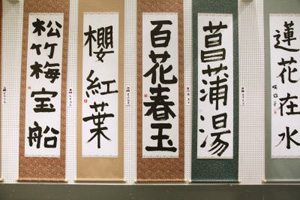 蓮花在水
菖蒲湯
百花春玉
櫻紅葉
松竹梅宝船